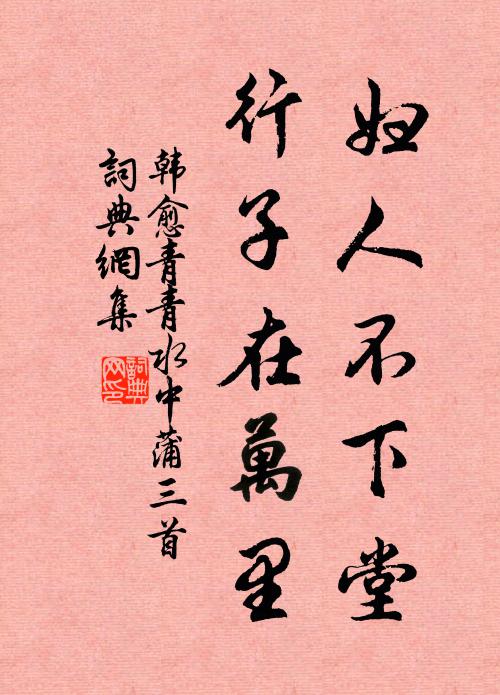 妇人不下堂
行子在萬里
韩愈青青水中蒲三首
詞典網集
詞典網印